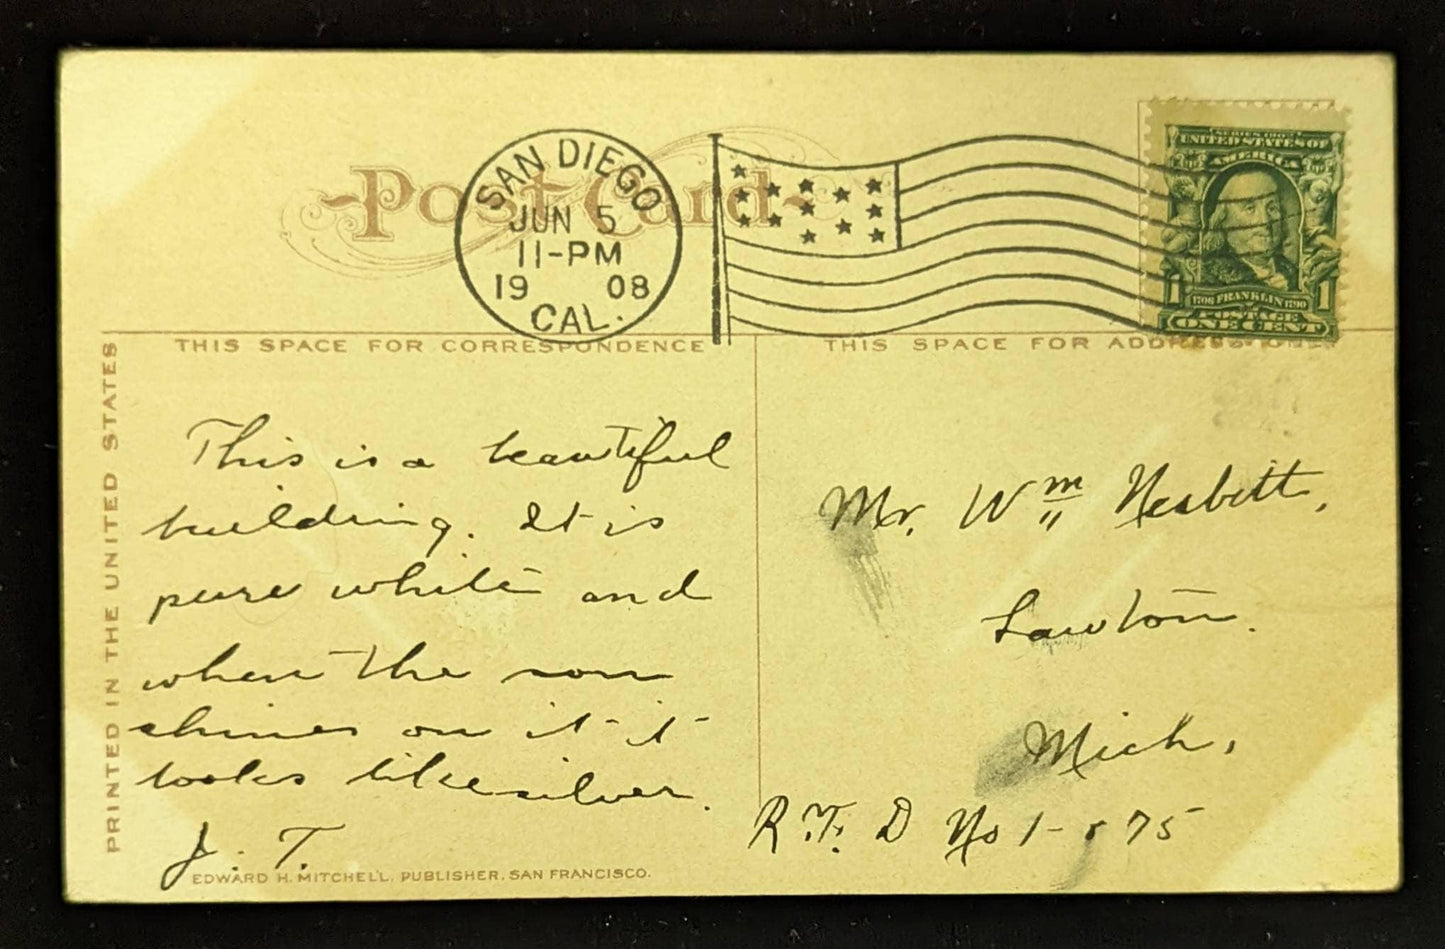 Post Card
SAN DIEGO
JUN 5
11-PM
19 08
CAL.
SERIES 1902
UNITED STATES OF
AMERICA
1 1
1706 FRANKLIN 1790
POSTAGE
ONE CENT
THIS SPACE FOR CORRESPONDENCE
THIS SPACE FOR ADDRESS ONLY
PRINTED IN THE UNITED STATES
This is a beautiful
building. It is
pure white and
when the sun
shines on it it
looks like silver.
J. T.
Mr. Wm Nesbitt,
Lawton.
Mich,
R. F. D No 1-
EDWARD H. MITCHELL, PUBLISHER, SAN FRANCISCO.